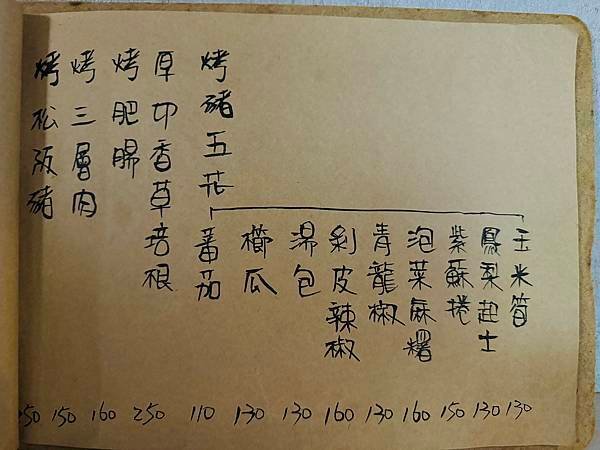 烤豬五花
玉米筍
130
鳳梨起士
130
紫蘇捲
150
泡菜麻糬
160
青龍椒
130
剝皮辣椒
160
湯包
130
櫛瓜
130
蕃茄
110
厚切香草培根
250
烤肥腸
160
烤三層肉
150
烤松阪豬